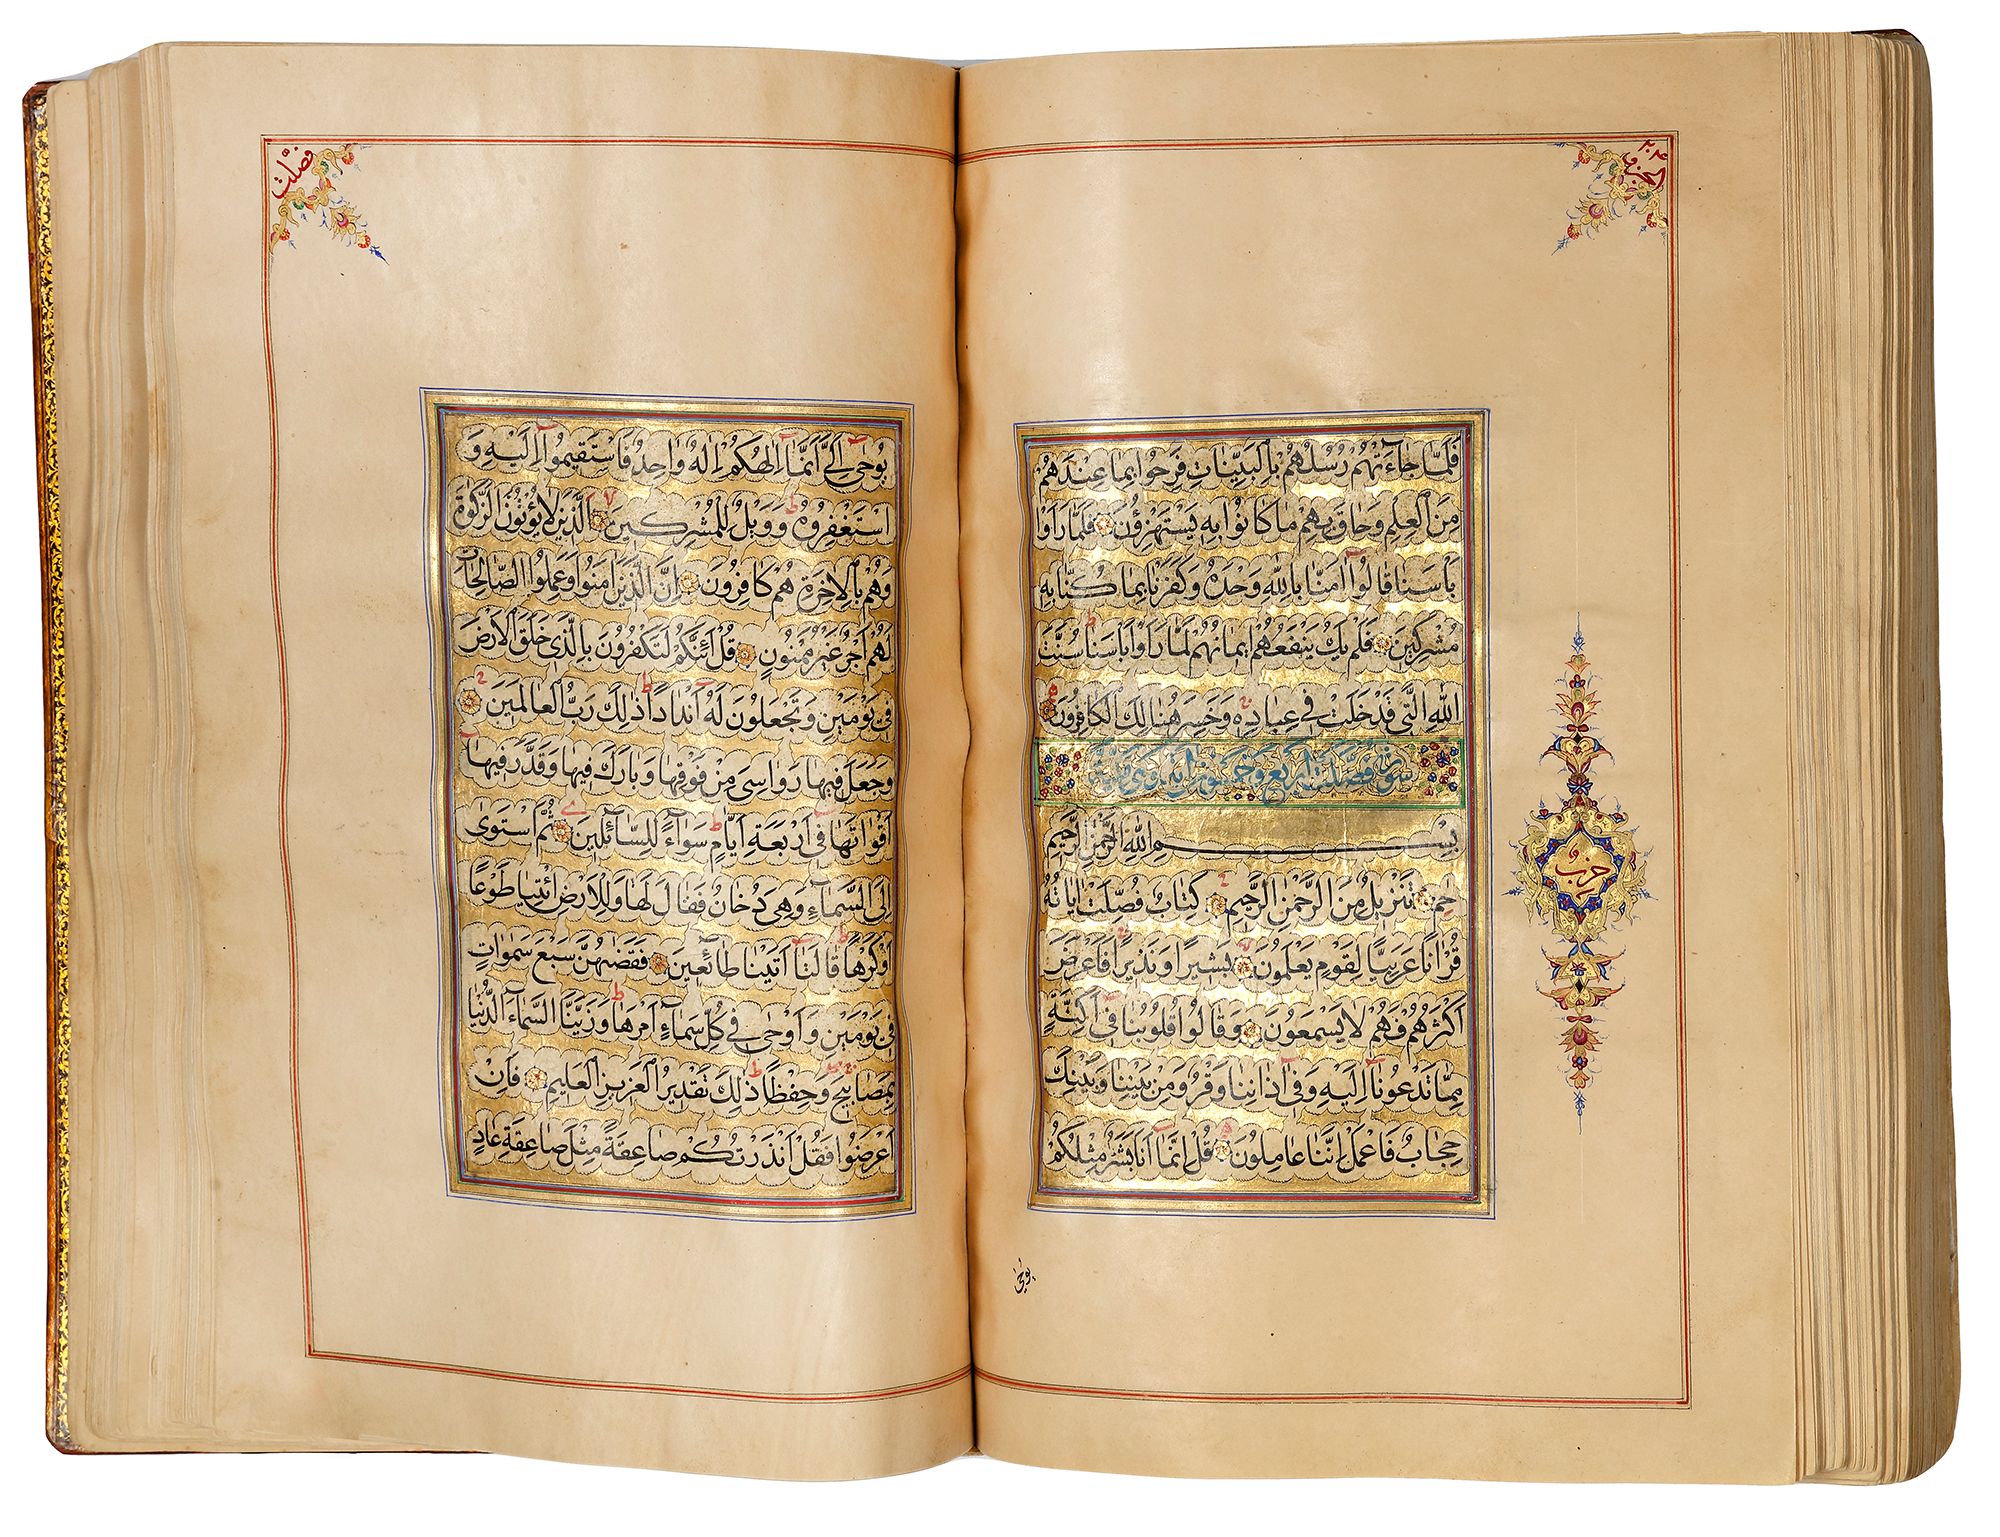 الجزو ٢٤
فَلَمَّا جَاءَتْهُمْ رُسُلُهُمْ بِالْبَيِّنَاتِ فَرِحُوا بِمَا عِنْدَهُمْ
مِنَ الْعِلْمِ وَحَاقَ بِهِمْ مَا كَانُوا بِهِ يَسْتَهْزِؤُنَ فَلَمَّا رَاَوْا
بَاْسَنَا قَالُوا اٰمَنَّا بِاللّٰهِ وَحْدَهُ وَكَفَرْنَا بِمَا كُنَّا بِهِ
مُشْرِكِينَ فَلَمْ يَكُ يَنْفَعُهُمْ اِيمَانُهُمْ لَمَّا رَاَوْا بَاْسَنَا سُنَّتَ
اللّٰهِ الَّتِي قَدْ خَلَتْ فِي عِبَادِهِ وَخَسِرَ هُنَالِكَ الْكَافِرُونَ
سورة فصلت اربع وخمسون اية وهي مكية
بِسْمِ اللّٰهِ الرَّحْمٰنِ الرَّحِيمِ
حٰمٓ تَنْزِيلٌ مِنَ الرَّحْمٰنِ الرَّحِيمِ كِتَابٌ فُصِّلَتْ اٰيَاتُهُ
قُرْاٰنًا عَرَبِيًّا لِقَوْمٍ يَعْلَمُونَ بَشِيرًا وَنَذِيرًا فَاَعْرَضَ
اَكْثَرُهُمْ فَهُمْ لَا يَسْمَعُونَ وَقَالُوا قُلُوبُنَا فِي اَكِنَّةٍ
مِمَّا تَدْعُونَا اِلَيْهِ وَفِي اٰذَانِنَا وَقْرٌ وَمِنْ بَيْنِنَا وَبَيْنِكَ
حِجَابٌ فَاعْمَلْ اِنَّنَا عَامِلُونَ قُلْ اِنَّمَا اَنَا بَشَرٌ مِثْلُكُمْ
حزب
يوحى
فصّلت
يُوحٰى اِلَيَّ اَنَّمَا اِلٰهُكُمْ اِلٰهٌ وَاحِدٌ فَاسْتَقِيمُوا اِلَيْهِ وَ
اسْتَغْفِرُوهُ وَوَيْلٌ لِلْمُشْرِكِينَ الَّذِينَ لَا يُؤْتُونَ الزَّكٰوةَ
وَهُمْ بِالْاٰخِرَةِ هُمْ كَافِرُونَ اِنَّ الَّذِينَ اٰمَنُوا وَعَمِلُوا الصَّالِحَاتِ
لَهُمْ اَجْرٌ غَيْرُ مَمْنُونٍ قُلْ اَئِنَّكُمْ لَتَكْفُرُونَ بِالَّذِي خَلَقَ الْاَرْضَ
فِي يَوْمَيْنِ وَتَجْعَلُونَ لَهُ اَنْدَادًا ذٰلِكَ رَبُّ الْعَالَمِينَ
وَجَعَلَ فِيهَا رَوَاسِيَ مِنْ فَوْقِهَا وَبَارَكَ فِيهَا وَقَدَّرَ فِيهَا
اَقْوَاتَهَا فِي اَرْبَعَةِ اَيَّامٍ سَوَاءً لِلسَّائِلِينَ ثُمَّ اسْتَوٰى
اِلَى السَّمَاءِ وَهِيَ دُخَانٌ فَقَالَ لَهَا وَلِلْاَرْضِ ائْتِيَا طَوْعًا
اَوْ كَرْهًا قَالَتَا اَتَيْنَا طَائِعِينَ فَقَضٰهُنَّ سَبْعَ سَمٰوَاتٍ
فِي يَوْمَيْنِ وَاَوْحٰى فِي كُلِّ سَمَاءٍ اَمْرَهَا وَزَيَّنَّا السَّمَاءَ الدُّنْيَا
بِمَصَابِيحَ وَحِفْظًا ذٰلِكَ تَقْدِيرُ الْعَزِيزِ الْعَلِيمِ فَاِنْ
اَعْرَضُوا فَقُلْ اَنْذَرْتُكُمْ صَاعِقَةً مِثْلَ صَاعِقَةِ عَادٍ